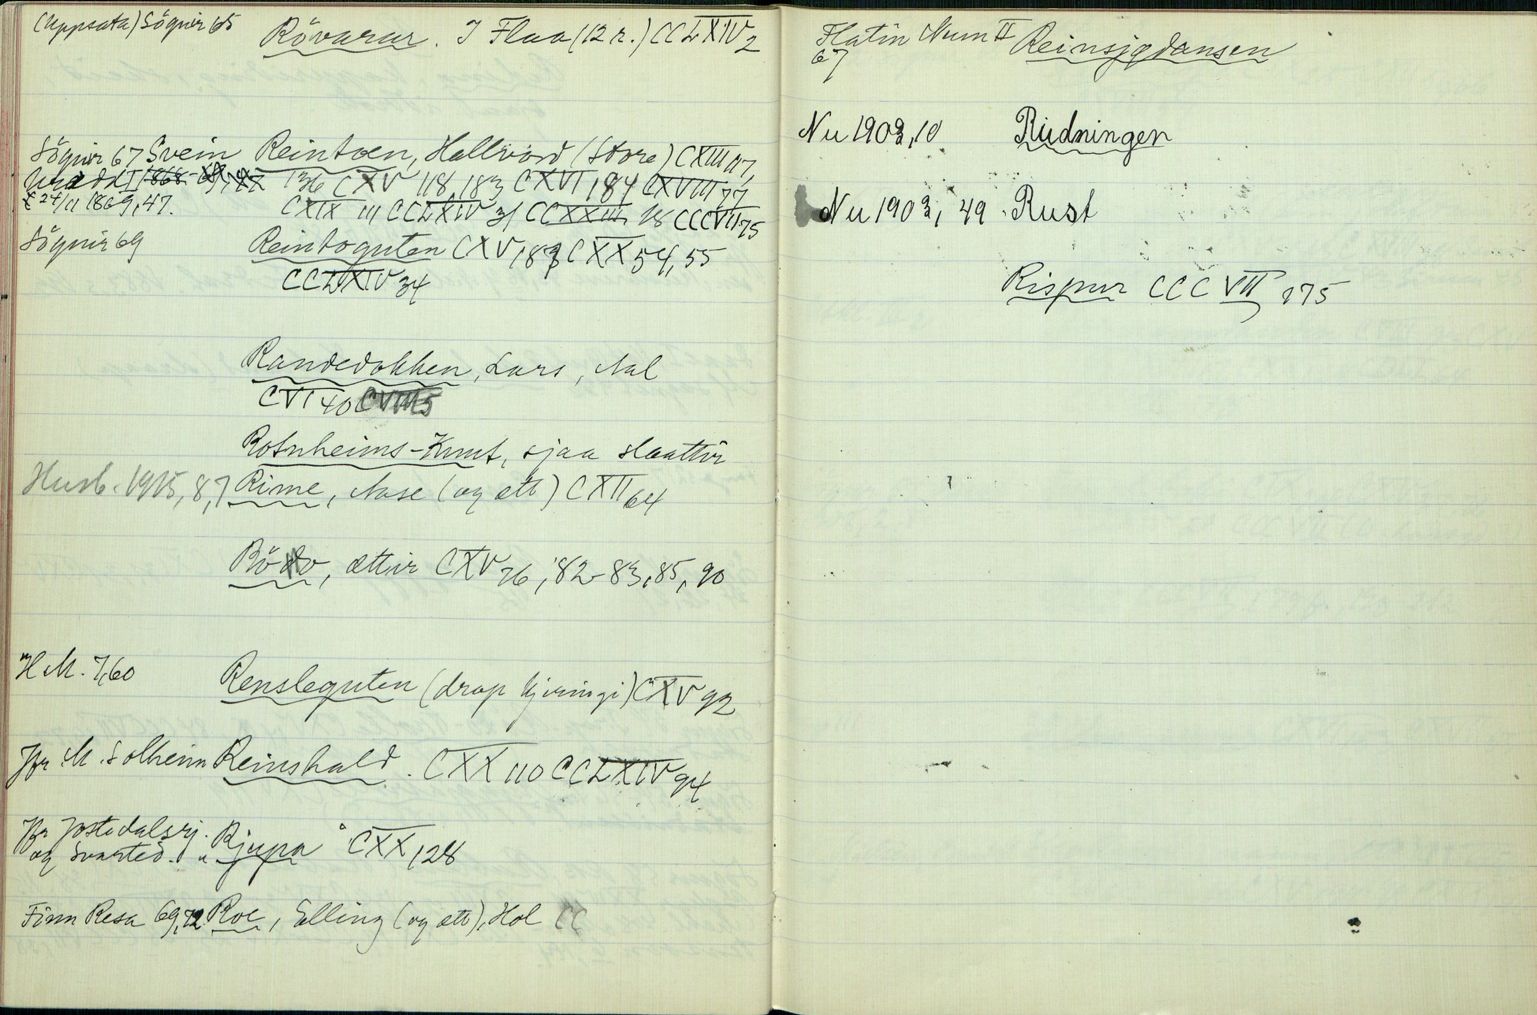 (Uppsata) Sögnir 65 Rövarar. I Flaa (12 r.) CCLXIV 2
Sögnir 67 Svein Reintoen, Hallvord (Store) CXIII 17,
136 CXV 118, 183 CXVI, 84 CXVIII 77
24/11 1869, 47. CXIX 111 CCLXIV 31 CCXXIII 18 CCCVII 75
Sögnir 69 Reintoguten CXV, 183 CXX 54, 55
CCLXIV 34
Randedokken, Lars, Aal
CVI 40 CVIII 5
Rotnheims-Knut, sjaa slaattir
Husb. 1915, 8,7 Rime, Aase (og ætt) CXII 64
Rödo, ættir CXV 76, 82-83, 85, 90
H.M. 7,60 Rensleguten (drap kjeringi) CXV 92
Jfr M. Solheim Reinshald. CXX 110 CCLXIV 94
Jfr Jostedalsrj. Rjupa CXX, 128
og Svarted.
Finn Resa 69, 72 Roe, Elling (og ætt), Hol CC
Flatin Num II Reinsjødansen
67
Nu 1903, 10 Rudningen
Nu 1903, 49. Rust
Rispur CCCVII 175